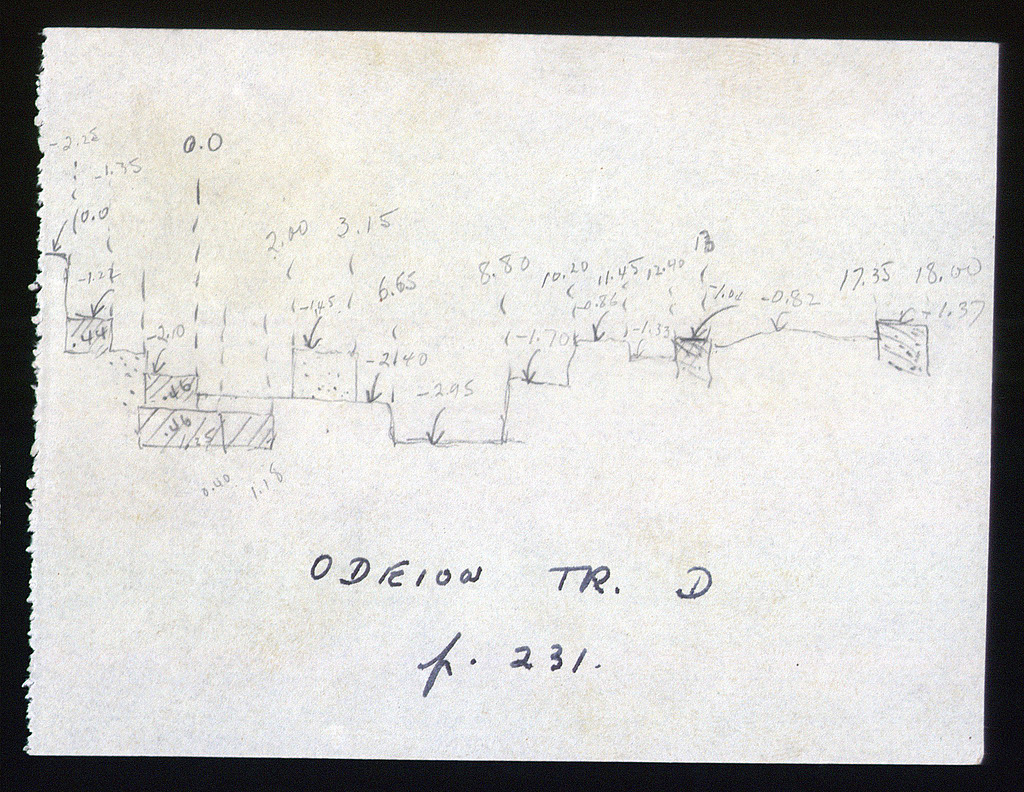 0.0
-2.25
-1.35
(0.0
2.00
3.15
6.65
8.80
10.20
11.45
12.90
13
17.35
18.00
-1.27
-2.10
-1.45
-2.40
-2.95
-1.70
-0.86
-1.33
-0.82
-1.37
.44
.46
.46
0.40
1.18
ODEION TR. D
p. 231.